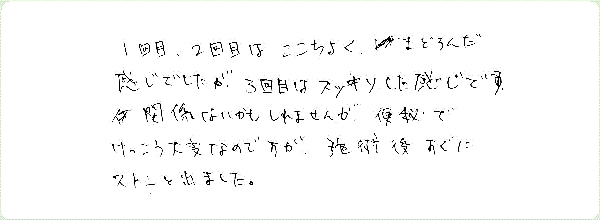 1回目、2回目は ここちよく、まどろんだ
感じでしたが 3回目はスッキリした感じです
関係ないかもしれませんが、便秘で
けっこう大変なのですが、施術後すぐに
ストンと出ました。